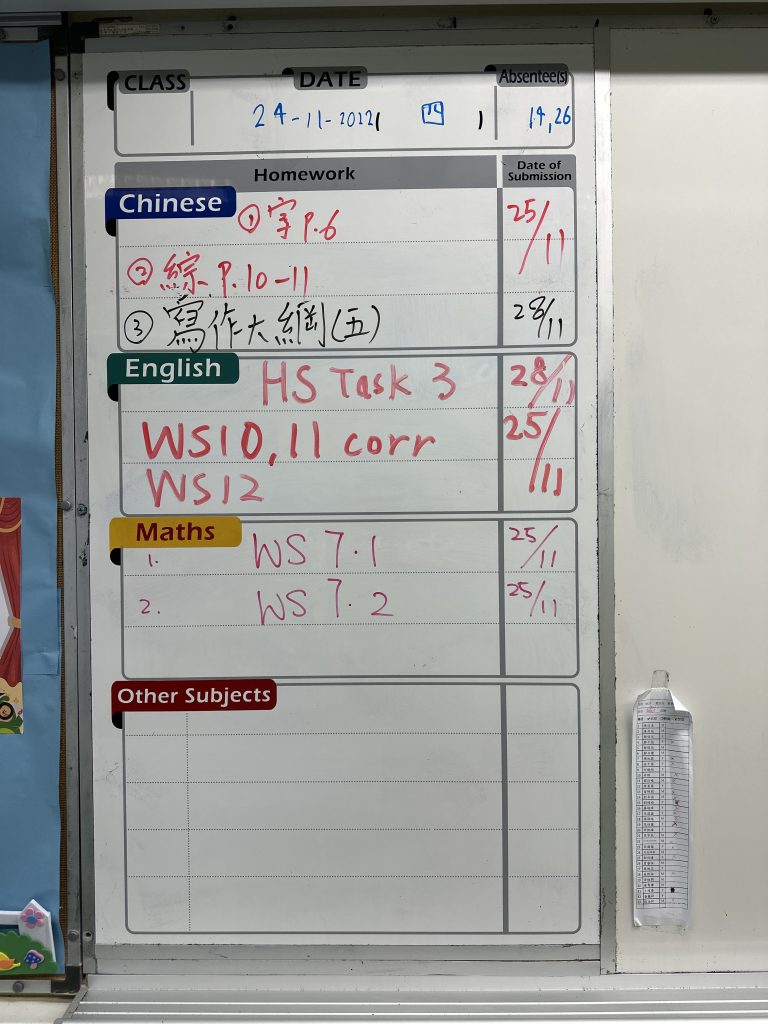 CLASS DATE Absentee(s)
24-11-2022( 四 ) 14,26
Homework Date of Submission
Chinese
① 字 P.6 25/11
② 綜 P.10-11
③ 寫作大綱(五) 28/11
English
HS Task 3 28/11
WS10,11 corr 25/11
WS12
Maths
1. WS 7.1 25/11
2. WS 7.2 25/11
Other Subjects